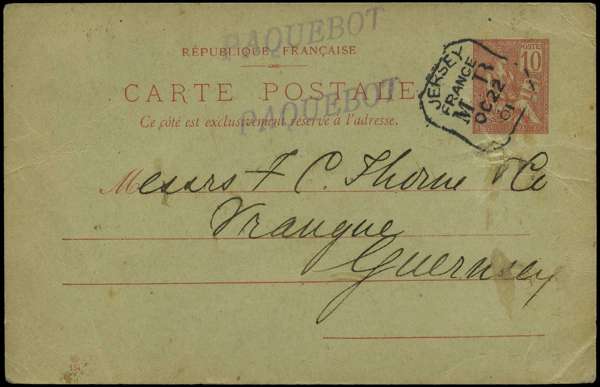 PAQUEBOT
RÉPUBLIQUE FRANÇAISE
CARTE POSTALE
PAQUEBOT
Ce côté est exclusivement réservé à l'adresse.
POSTES
10
JERSEY
FRANCE
M B
OC 22
01
Messrs F C. Thorne & Co
Vrangue
Guernsey